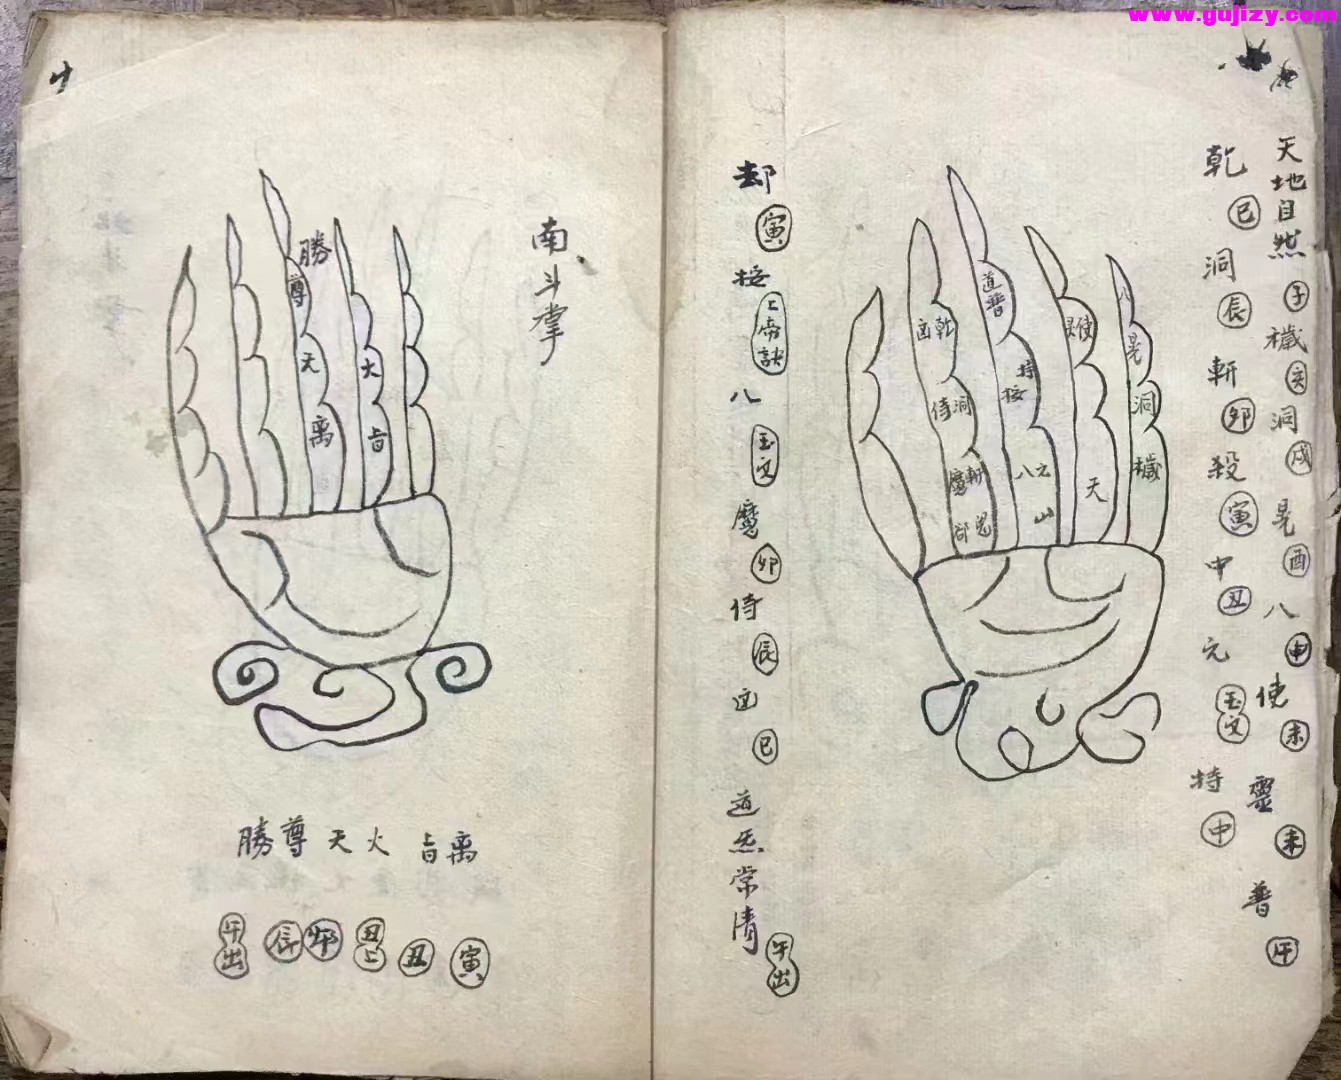 www.gujizy.com
天地自然子穢亥洞戌晃酉八申使未靈未普午
乾巳洞辰斬卯殺寅中丑元玉文特中
道普
乾凶
持按
侍洞
斬魔
八元
山
使
天
八
晃
洞
穢
寅按上南訣八玉文魔卯侍辰凶巳道炁常清午出
南斗掌
勝
尊
天
离
火
旨
勝尊天火旨离
午出
辰
卯
丑上
丑
寅